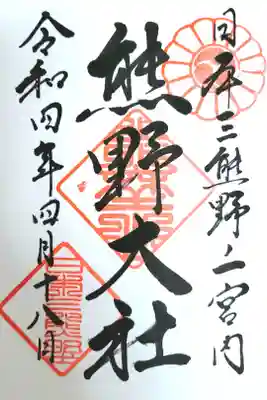 日本三熊野ノ一宮内
熊野大社
令和四年四月十八日